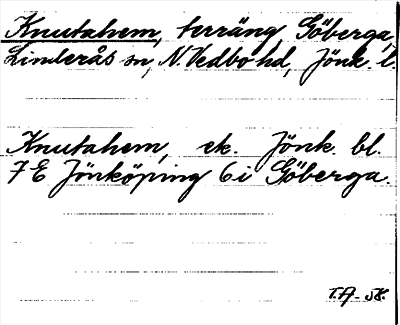 Knutahem, terräng Göberga,
Linderås sn, N. Vedbo hd, Jönk. l.
Knutahem, ek. Jönk. bl.
7E Jönköping 6i Göberga.
T.A-58.